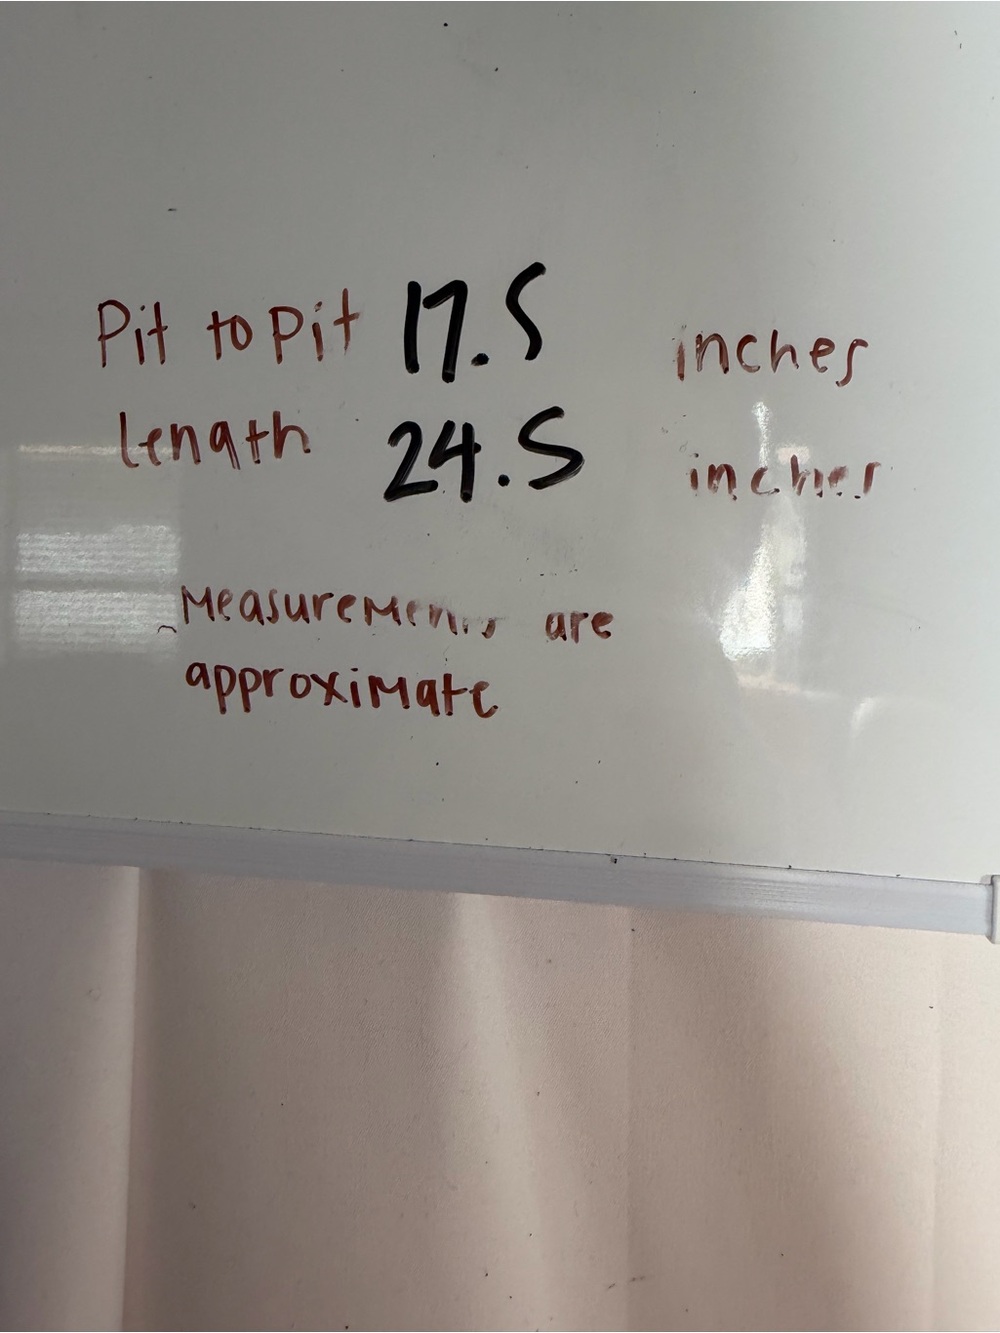 Pit to pit 17.5 inches
length 24.5 inches
Measurements are
approximate